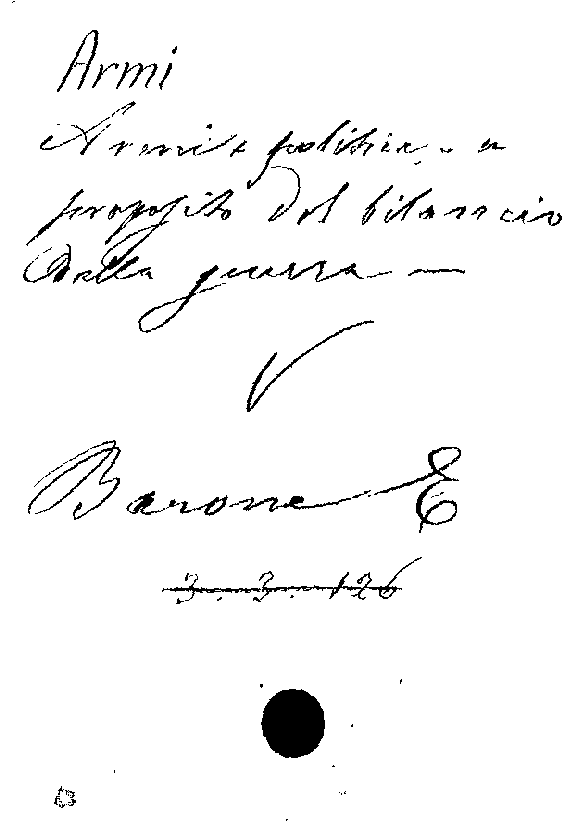 Armi
Armi e politica - a
proposito del bilancio
della guerra —
V
Barone E
3. 3. 126